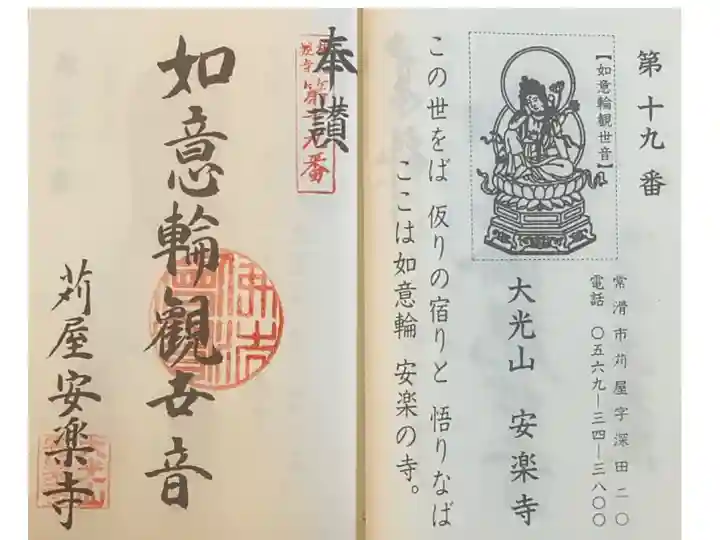 第十九番
【如意輪観世音】
大光山 安楽寺
常滑市苅屋字深田二〇
電話 〇五六九―三四―三八〇〇
この世をば 仮りの宿りと 悟りなば
ここは如意輪 安楽の寺。
奉讃
第十九番
如意輪觀世音
苅屋安楽寺